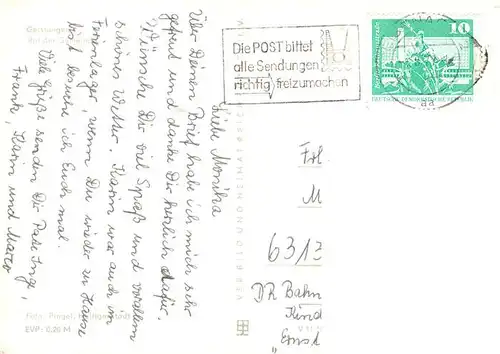 Liebe Monika
Über Deinen Brief habe ich mich sehr
gefreut und danke Dir herzlich dafür.
Wünsche Dir viel Spaß und vorallem
schönes Wetter. Karin war auch im
Ferienlager, wenn Du wieder zu Hause
bist besuche ich Euch mal.
Viele Grüße senden Dir Pate Inge,
Frank, Karin und Marco
Die POST bittet
alle Sendungen
richtig freizumachen
10
DEUTSCHE DEMOKRATISCHE REPUBLIK
Frl.
M
6313
DR Bahn
Kind
Ernst
EVP: 0,20 M